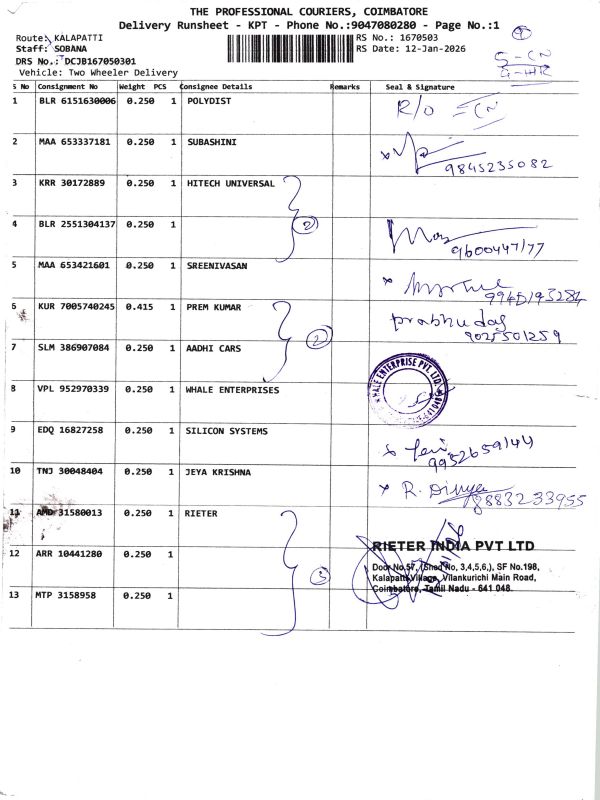 THE PROFESSIONAL COURIERS, COIMBATORE
Delivery Runsheet - KPT - Phone No.:9047080280 - Page No.:1
Route: KALAPATTI
RS No.: 1670503
Staff: SOBANA
RS Date: 12-Jan-2026
5-CN
DRS No.: DCJB167050301
Vehicle: Two Wheeler Delivery
S No Consignment No Weight PCS Consignee Details Remarks Seal & Signature
1 BLR 6151630006 0.250 1 POLYDIST R/O = CN
2 MAA 653337181 0.250 1 SUBASHINI
9845235082
3 KRR 30172889 0.250 1 HITECH UNIVERSAL
2
4 BLR 2551304137 0.250 1
9600447177
5 MAA 653421601 0.250 1 SREENIVASAN
6 KUR 7005740245 0.415 1 PREM KUMAR
2
7 SLM 386907084 0.250 1 AADHI CARS
8 VPL 952970339 0.250 1 WHALE ENTERPRISES
WHALE ENTERPRISE PVT. LTD.
9 EDQ 16827258 0.250 1 SILICON SYSTEMS
9952659144
10 TNJ 30048404 0.250 1 JEYA KRISHNA
R. Divya
8883233955
11 AMD 31580013 0.250 1 RIETER
3
RIETER INDIA PVT LTD
12 ARR 10441280 0.250 1
Door No.57, (Shed No, 3,4,5,6,), SF No.198,
Kalapatti Village, Vilankurichi Main Road,
Coimbatore, Tamil Nadu - 641 048.
13 MTP 3158958 0.250 1